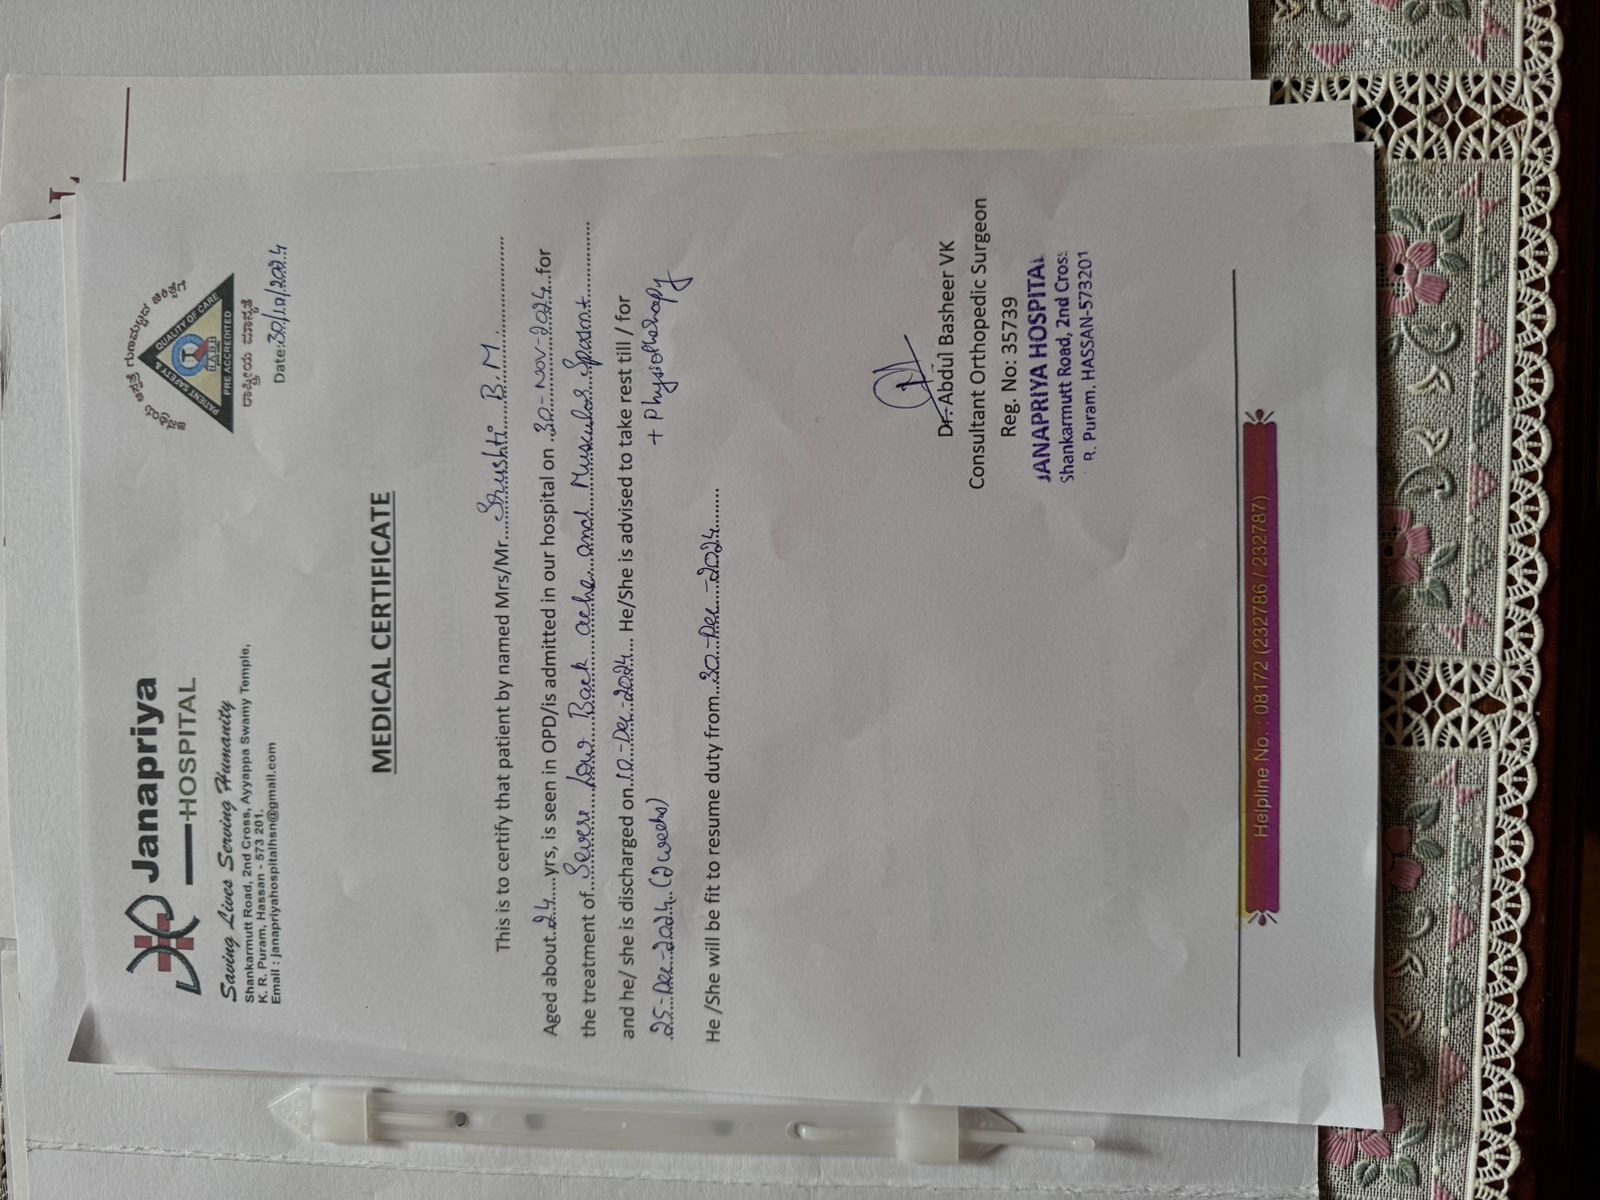 Janapriya
HOSPITAL
Saving Lives Serving Humanity
Shankarmutt Road, 2nd Cross, Ayyappa Swamy Temple,
K. R. Puram, Hassan - 573 201.
Email : janapriyahospitalhsn@gmail.com
PATIENT SAFETY & QUALITY OF CARE
PRE ACCREDITED
Date:30/12/2024
MEDICAL CERTIFICATE
This is to certify that patient by named Mrs/Mr...Srushti B.M
Aged about..24....yrs, is seen in OPD/is admitted in our hospital on .30-Nov-2024..for
the treatment of..Severe Low Back ache and Muscular Spasm
and he/ she is discharged on.10-Dec-2024... He/She is advised to take rest till / for
.25-Dec-2024..(2 weeks) + Physiotherapy
He /She will be fit to resume duty from..30-Dec-2024
Dr. Abdul Basheer VK
Consultant Orthopedic Surgeon
Reg. No: 35739
JANAPRIYA HOSPITAL
Shankarmutt Road, 2nd Cross
R. Puram, HASSAN-573201
Helpline No. : 08172 (232786 / 232787)